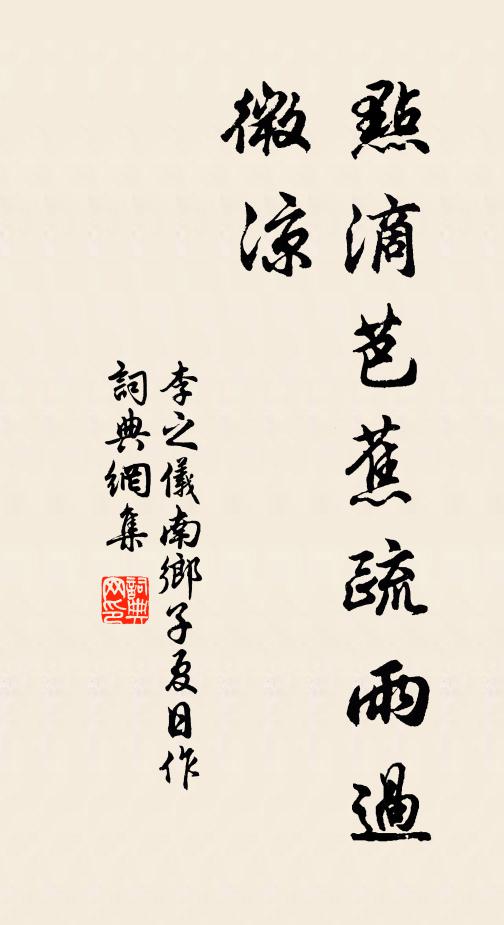 點滴芭蕉疏雨過
微涼
李之儀南鄉子夏日作
詞典網集
詞典網印